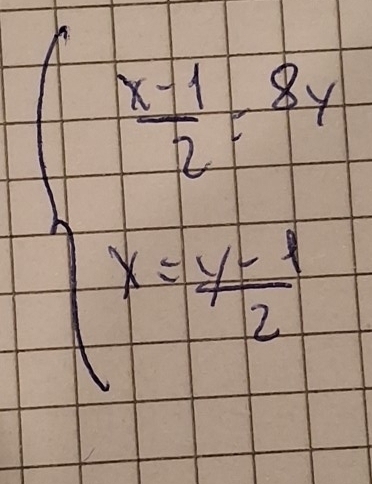 x-1/2 = 8y
x = y-1/2